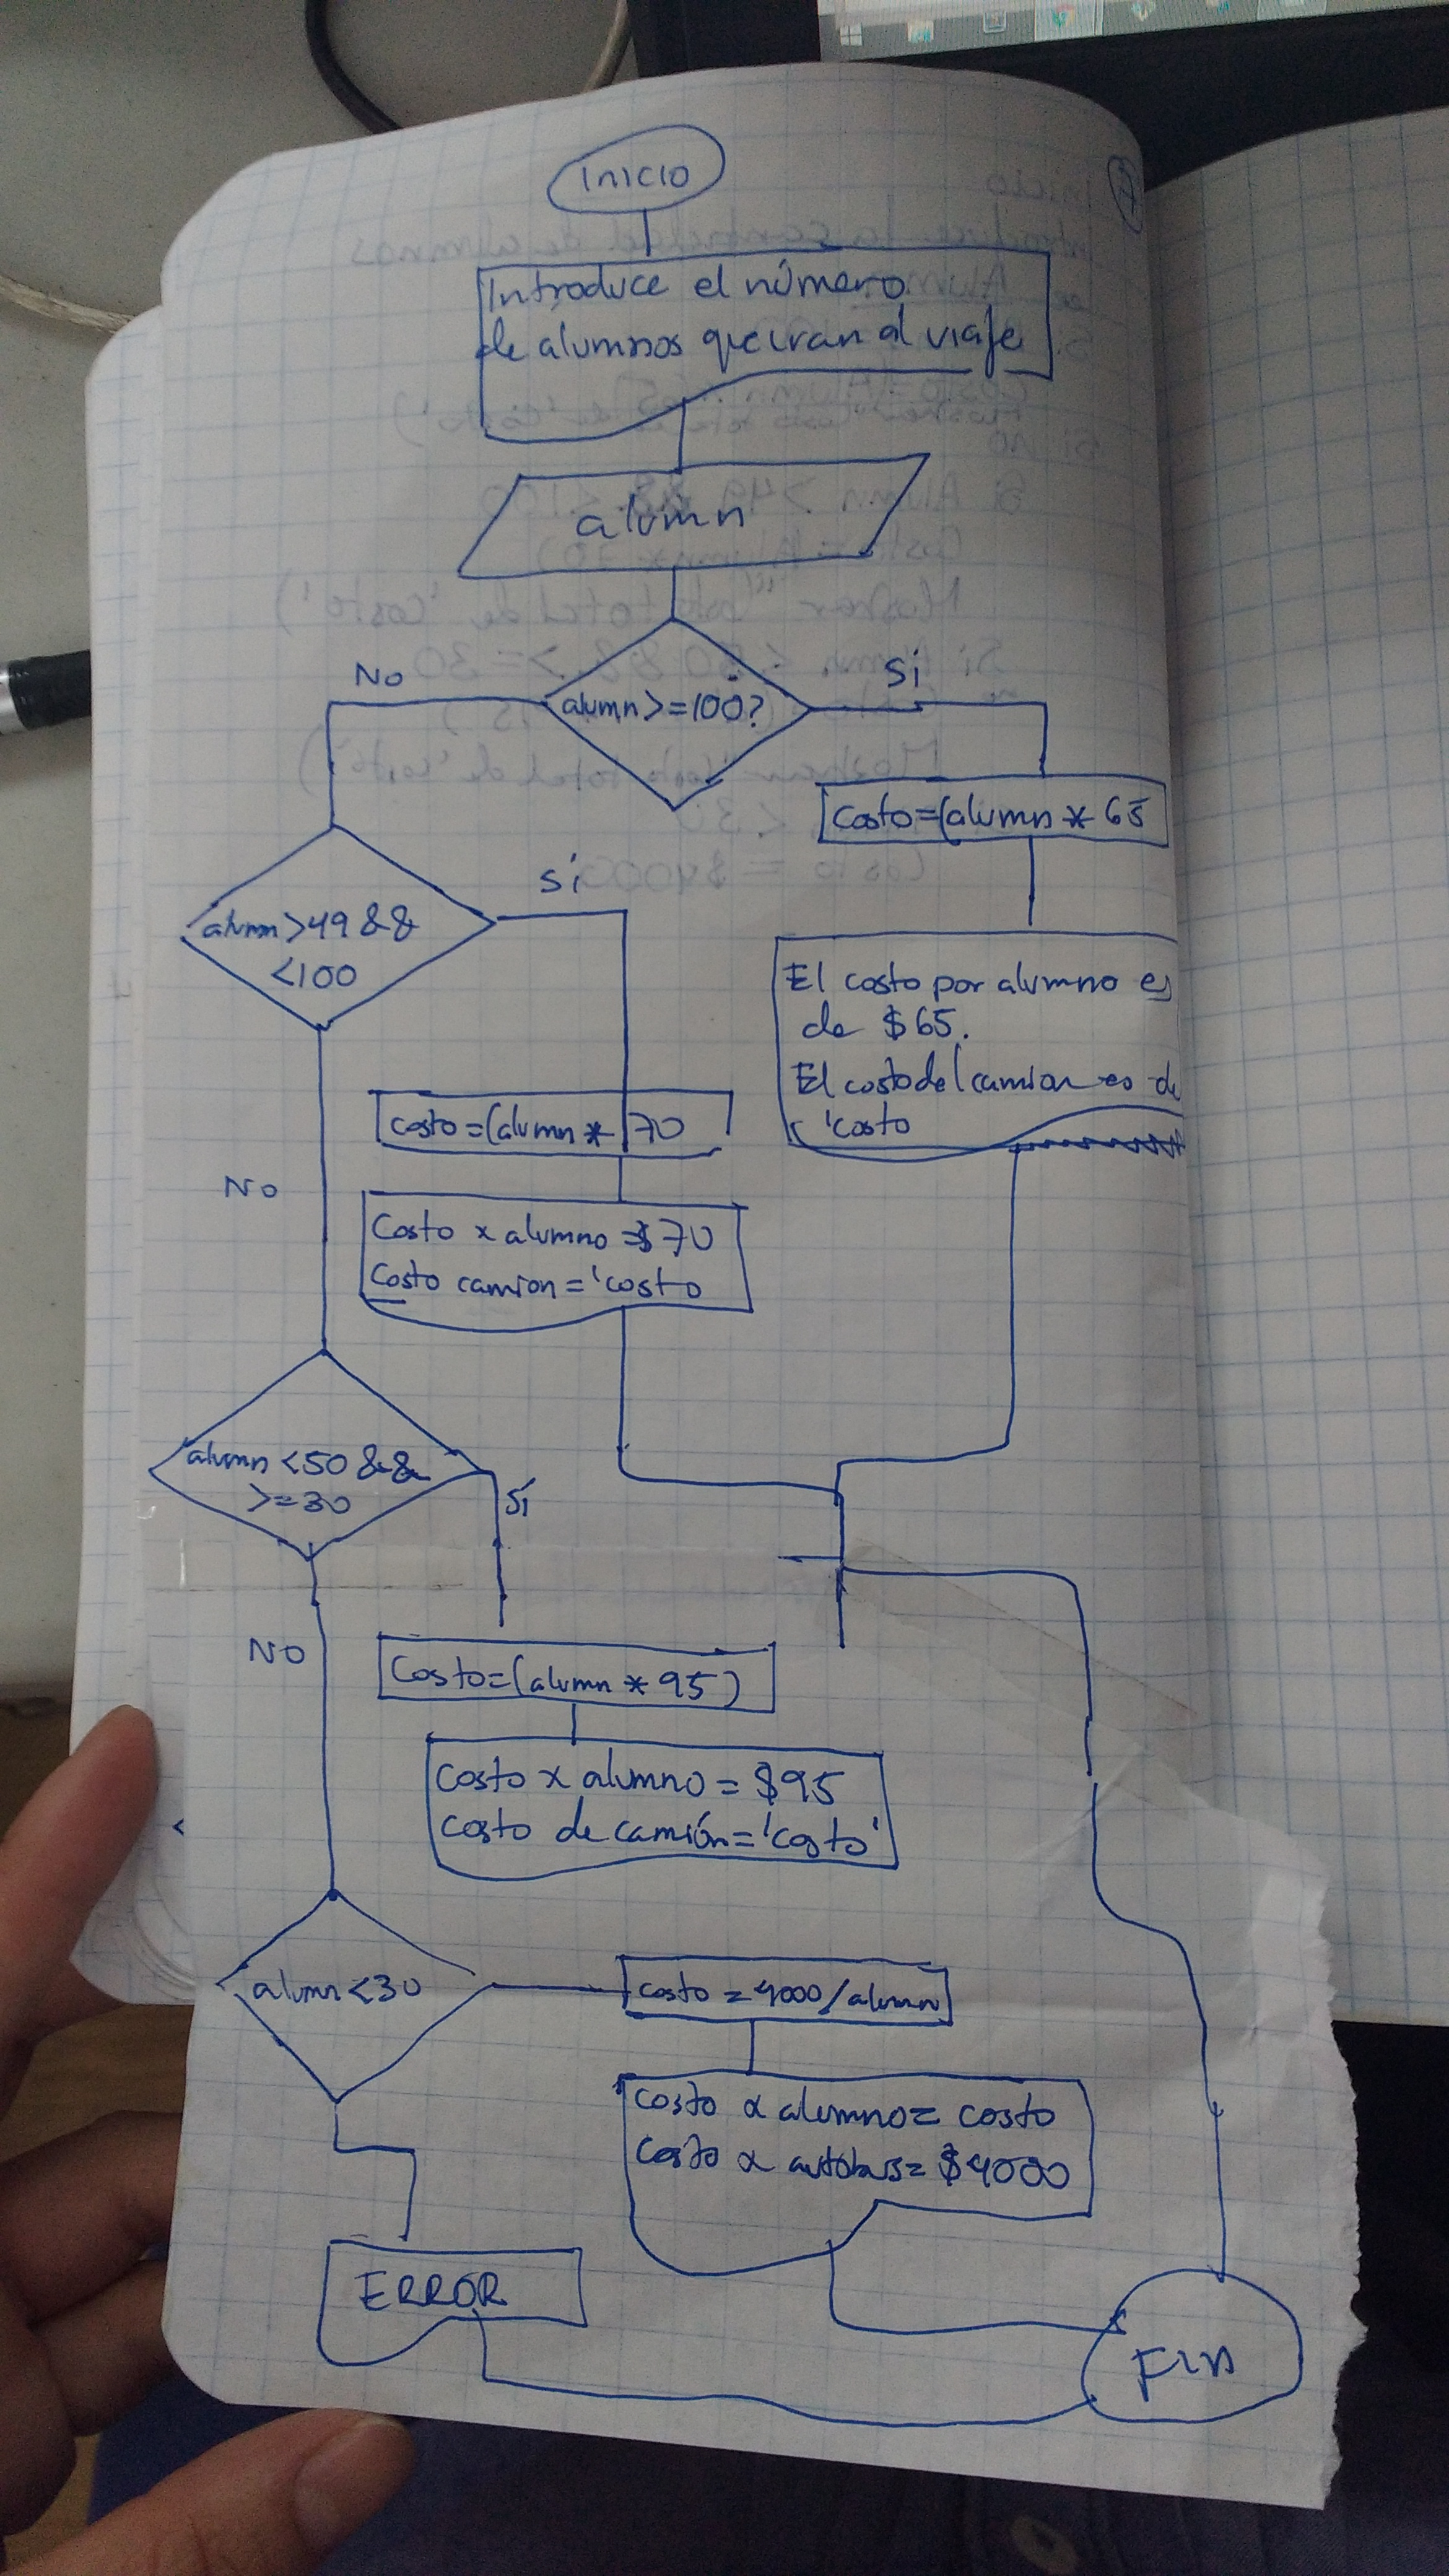 Inicio
Introduce el número
de alumnos que iran al viaje
alumn
No
alumn>=100?
Si
costo=(alumn * 65
alumn >49 &&
<100
Si
El costo por alumno es
de $65.
El costo del camion es de
'costo
costo=(alumn * 70
No
Costo x alumno =$70
Costo camion = 'costo
alumn <50 &&
>=30
Sí
NO
Costo=(alumn * 95)
Costo x alumno = $95
costo de camión='costo'
alumn<30
costo = 4000/alumn
costo x alumno= costo
costo x autobus= $4000
ERROR
Fin